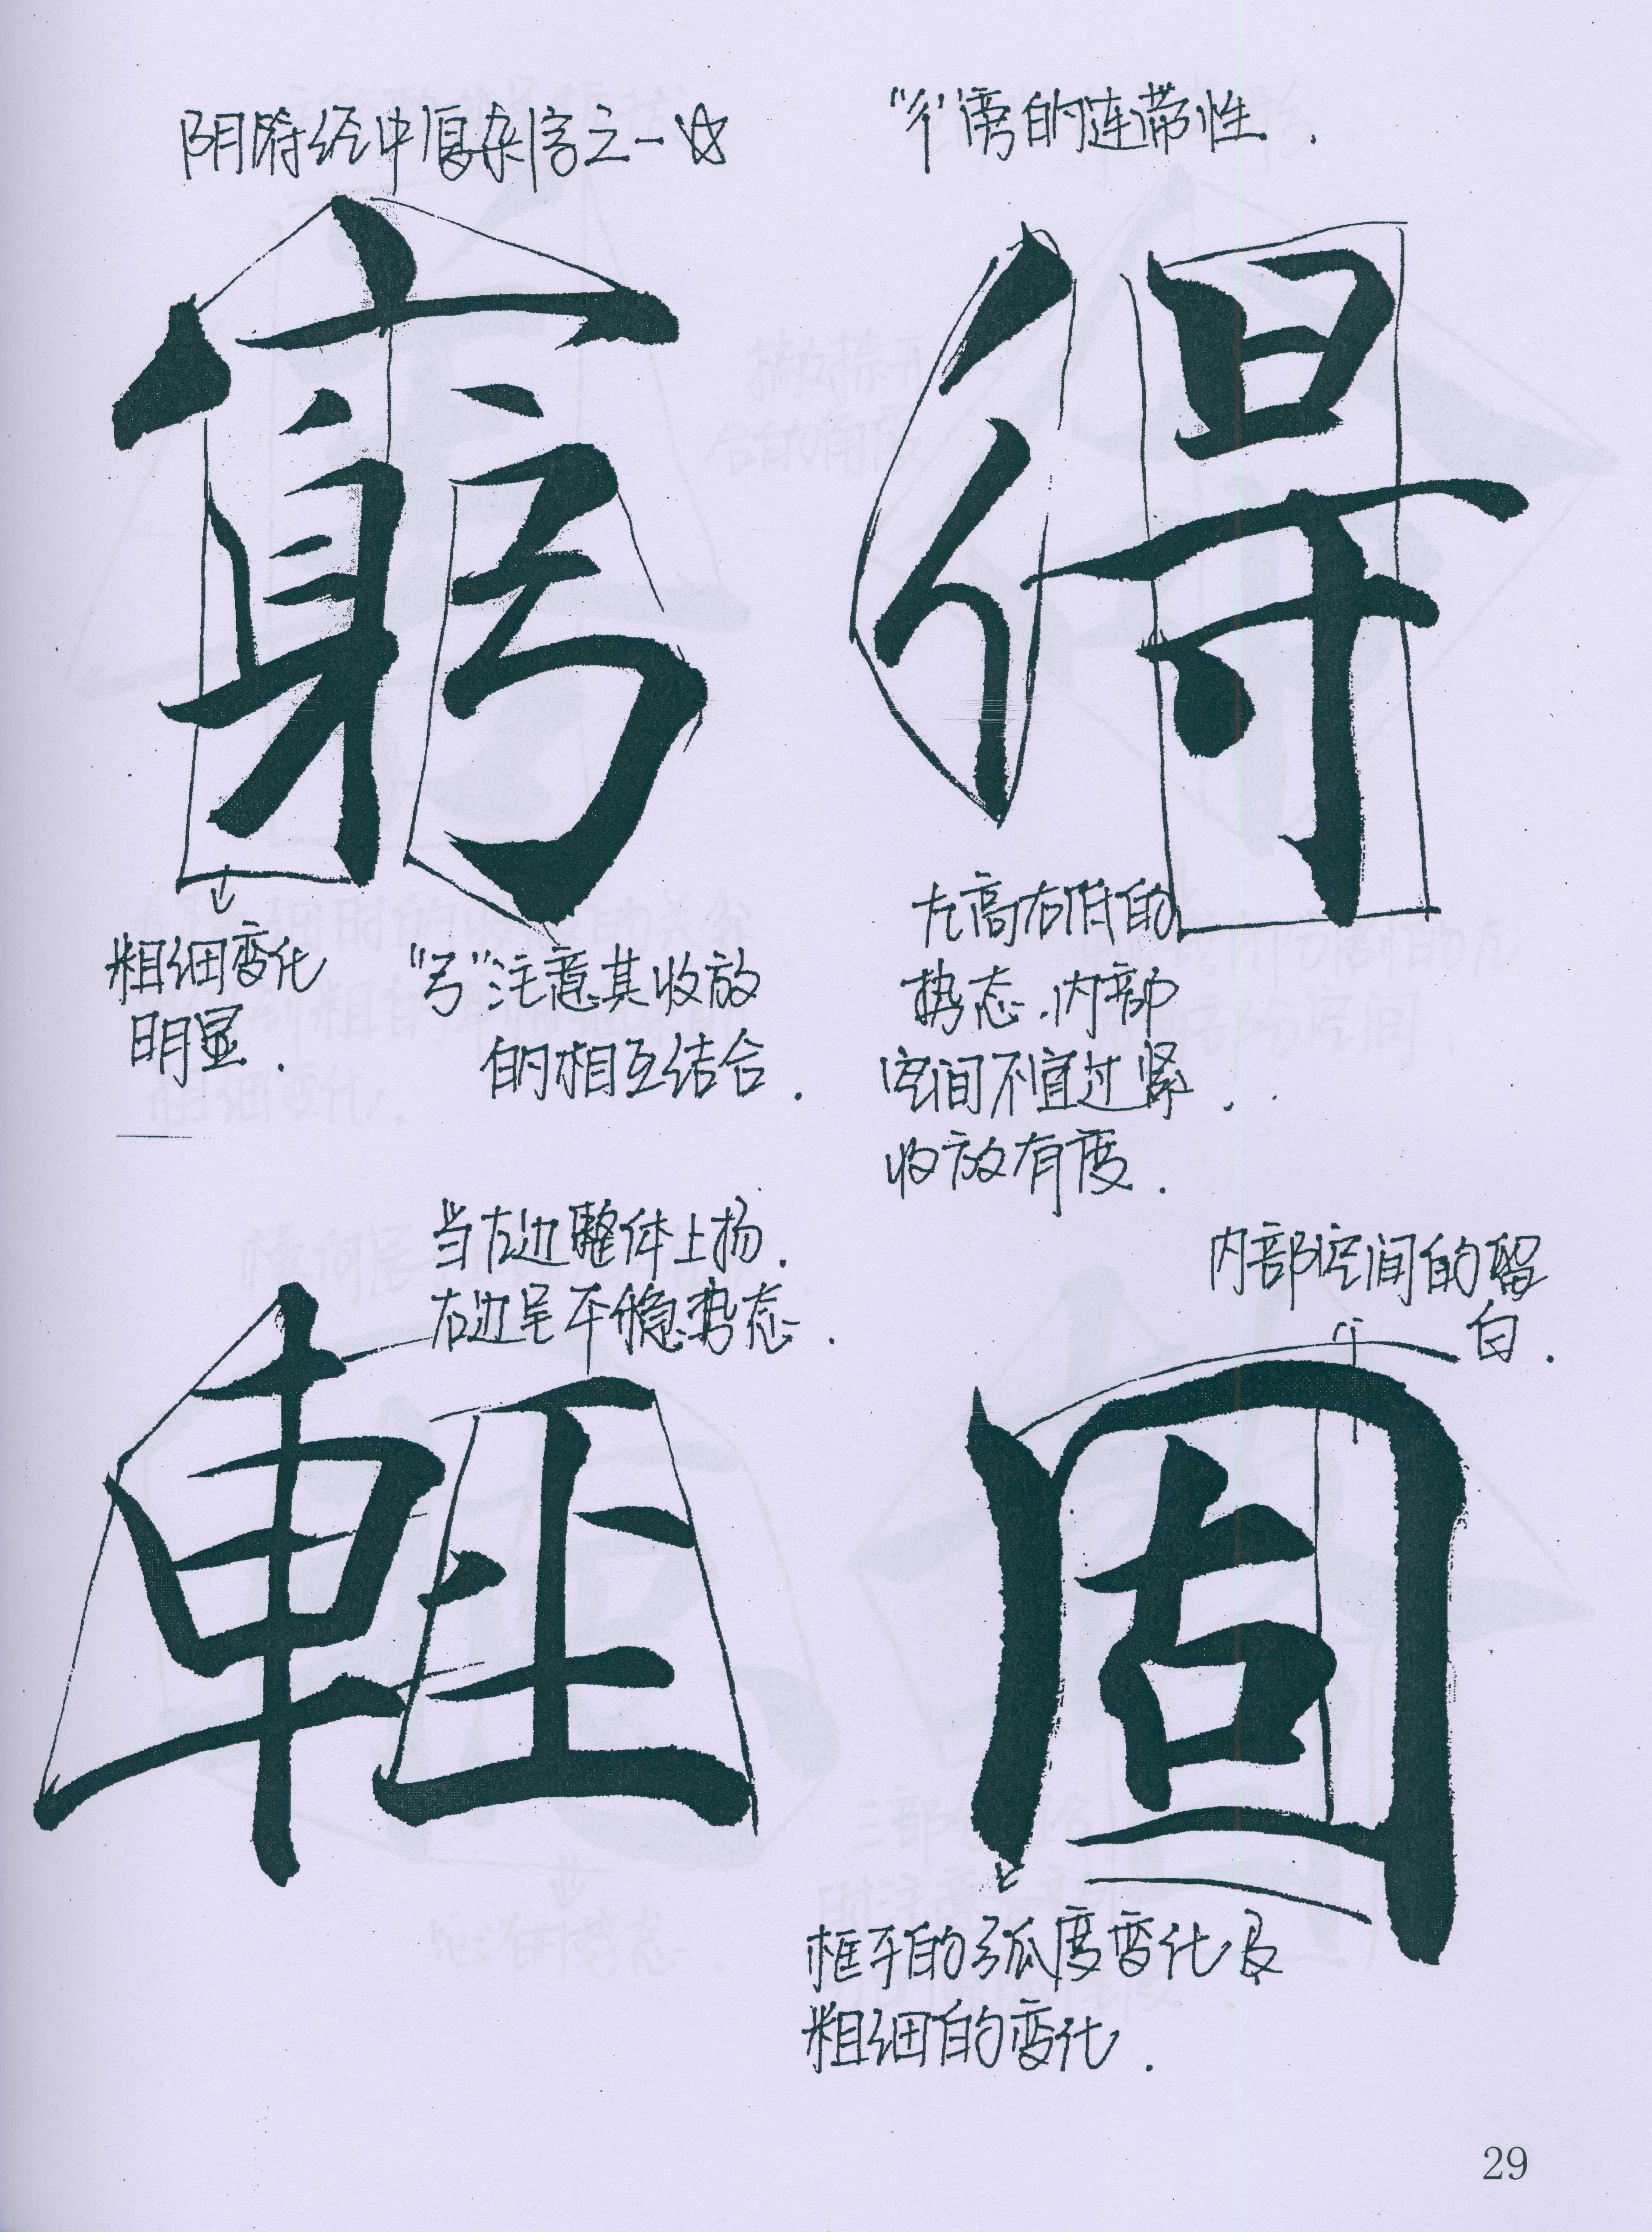 阴符经中复杂字之一☆
"彳"旁的连带性.
窮
得
粗细变化
明显.
"弓"注意其收放
的相互结合.
左高右低的
势态.内部
空间不宜过紧.
收放有度.
当左边整体上扬.
右边呈平稳势态.
内部空间的留
白.
輕
固
框子的弧度变化及
粗细的变化.
29